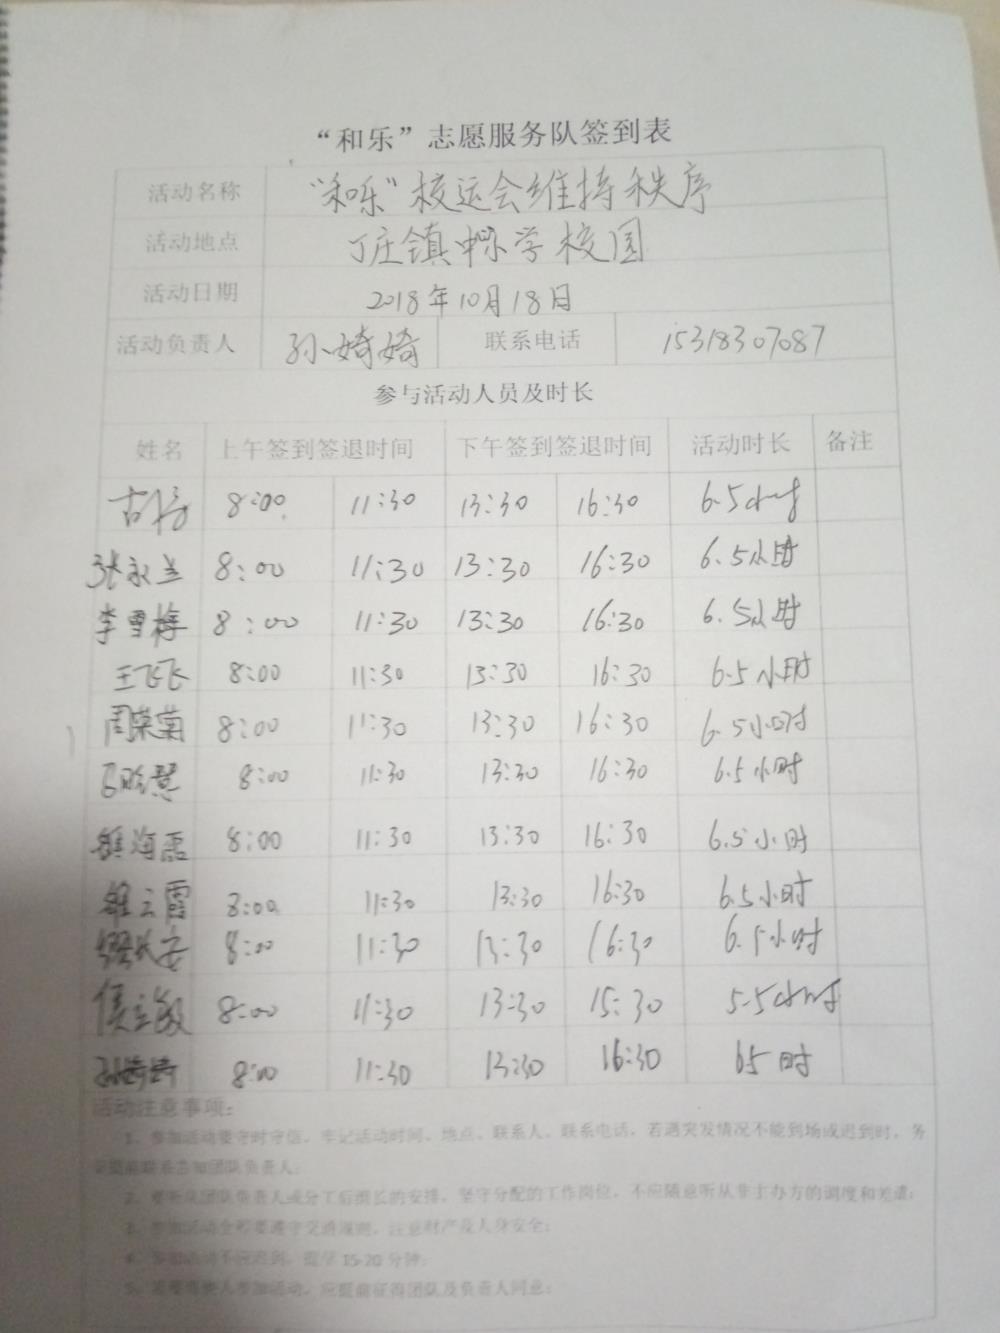 “和乐”志愿服务队签到表
活动名称 “和乐”校运会维持秩序
活动地点 丁庄镇中心小学校园
活动日期 2018年10月18日
活动负责人 孙婍婍 联系电话 15318307087
参与活动人员及时长
姓名 上午签到签退时间 下午签到签退时间 活动时长 备注
8:00 11:30 13:30 16:30 6.5小时
张永兰 8:00 11:30 13:30 16:30 6.5小时
李雪梅 8:00 11:30 13:30 16:30 6.5小时
王飞飞 8:00 11:30 13:30 16:30 6.5小时
周荣菊 8:00 11:30 13:30 16:30 6.5小时
8:00 11:30 13:30 16:30 6.5小时
海霞 8:00 11:30 13:30 16:30 6.5小时
云霞 8:00 11:30 13:30 16:30 6.5小时
8:00 11:30 13:30 16:30 6.5小时
侯立敏 8:00 11:30 13:30 15:30 5.5小时
孙婍婍 8:00 11:30 13:30 16:30 65时
活动注意事项：
1、参加活动要守时守信，牢记活动时间、地点、联系人、联系电话，若遇突发情况不能到场或迟到时，务
必提前联系告知团队负责人；
2、要听从团队负责人或分工后组长的安排，坚守分配的工作岗位，不应随意听从非主办方的调度和差遣；
3、参加活动全程要遵守交通规则，注意财产及人身安全；
4、参加活动不应迟到，提早15-20分钟；
5、参加活动，应提前征得团队及负责人同意；